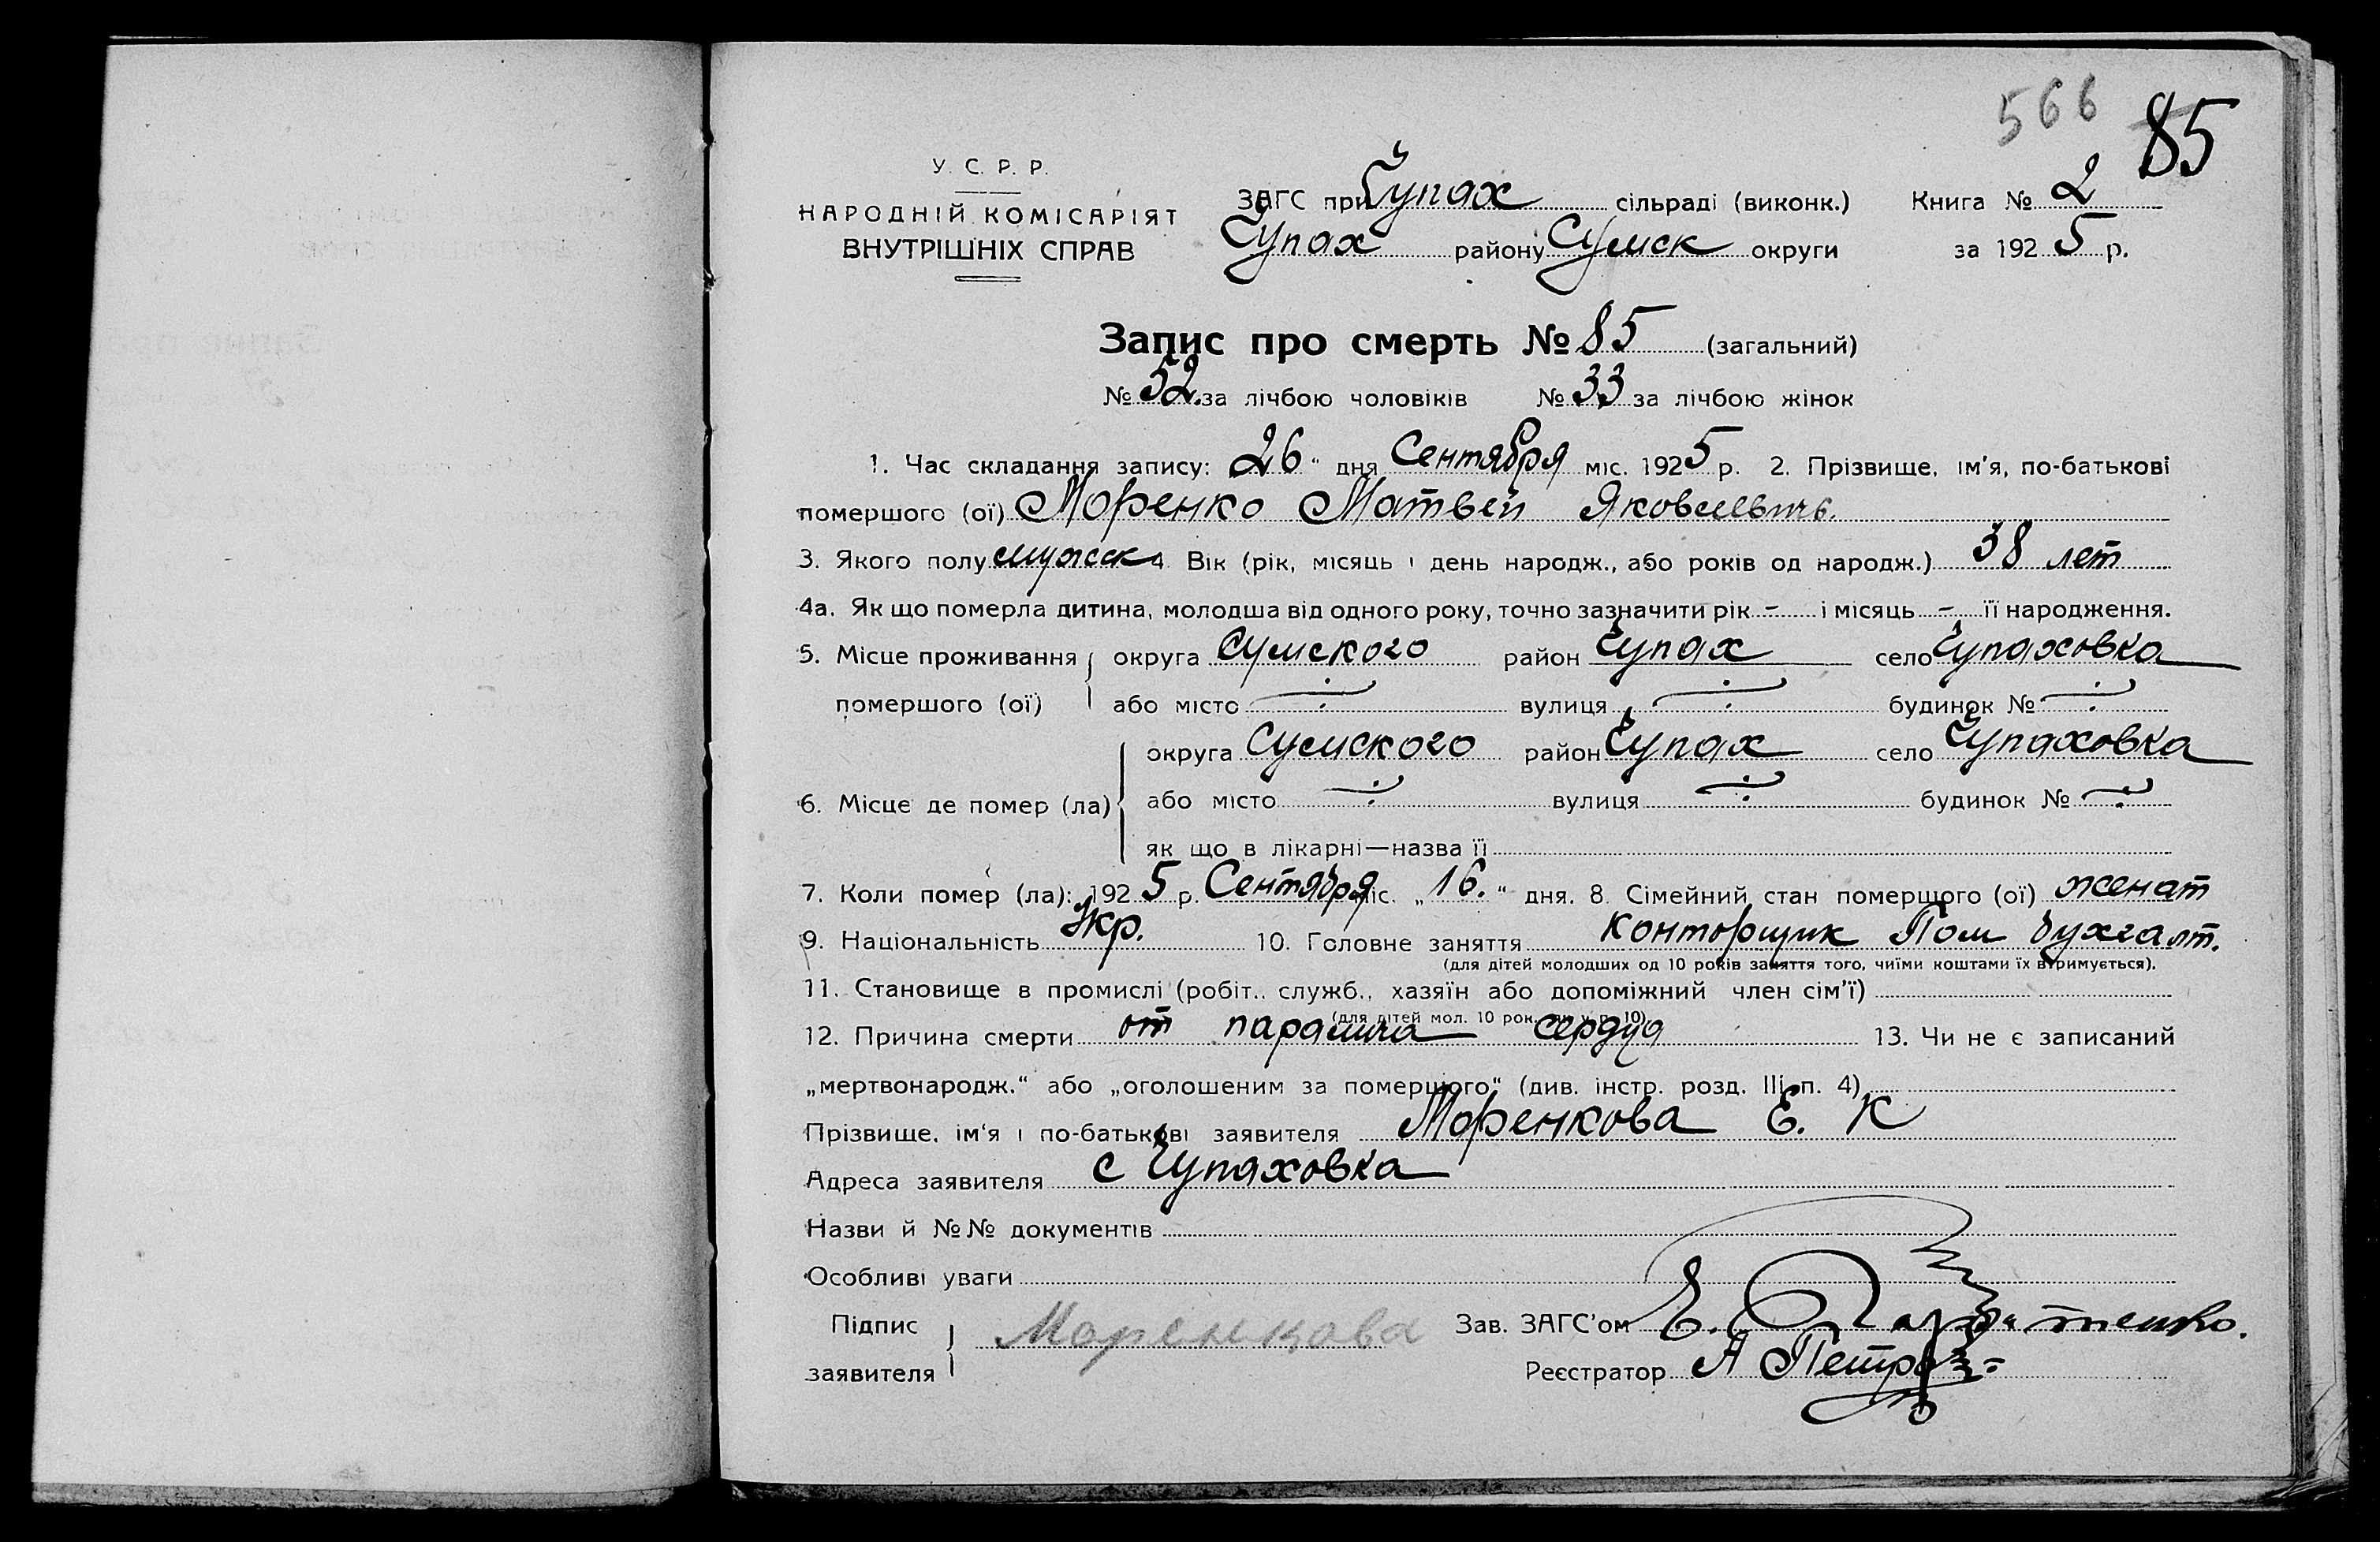 566 85
У. С. Р. Р.
НАРОДНІЙ КОМІСАРІЯТ
ВНУТРІШНІХ СПРАВ
ЗАГС при Чупах сільраді (виконк.) Книга № 2
Чупах району Сумск округи за 1925 р.
Запис про смерть № 85 (загальний)
№ 52. за лічбою чоловіків № 33 за лічбою жінок
1. Час складання запису: 26 " дня Сентября міс. 1925 р. 2. Прізвище, ім'я, по-батькові
помершого (ої) Моренко Матвей Яковлевичъ.
3. Якого полу мужск 4 Вік (рік, місяць і день народж., або років од народж.) 38 лет
4а. Як що померла дитина, молодша від одного року, точно зазначити рік - і місяць - її народження.
5. Місце проживання округа Сумского район Чупах село Чупаховка
помершого (ої) або місто вулиця будинок №
округа Сумского район Чупах село Чупаховка
6. Місце де помер (ла) або місто вулиця будинок №
як що в лікарні—назва її
7. Коли помер (ла): 1925 р. Сентября міс. „16." дня. 8. Сімейний стан помершого (ої) женат
9. Національність Укр. 10. Головне заняття конторщик Пом бухгалт.
(для дітей молодших од 10 років заняття того, чиїми коштами їх втримується).
11. Становище в промислі (робіт., служб., хазяїн або допоміжний член сім'ї)
(для дітей мол. 10 рок. п. 10)
12. Причина смерти от паралича сердца 13. Чи не є записаний
„мертвонародж." або „оголошеним за помершого" (див. інстр. розд. III п. 4)
Прізвище, ім'я і по-батькові заявителя Моренкова Е. К
Адреса заявителя с Чупаховка
Назви й №№ документів
Особливі уваги
Підпис заявителя Моренкова
Зав. ЗАГС'ом Е.
Реєстратор А